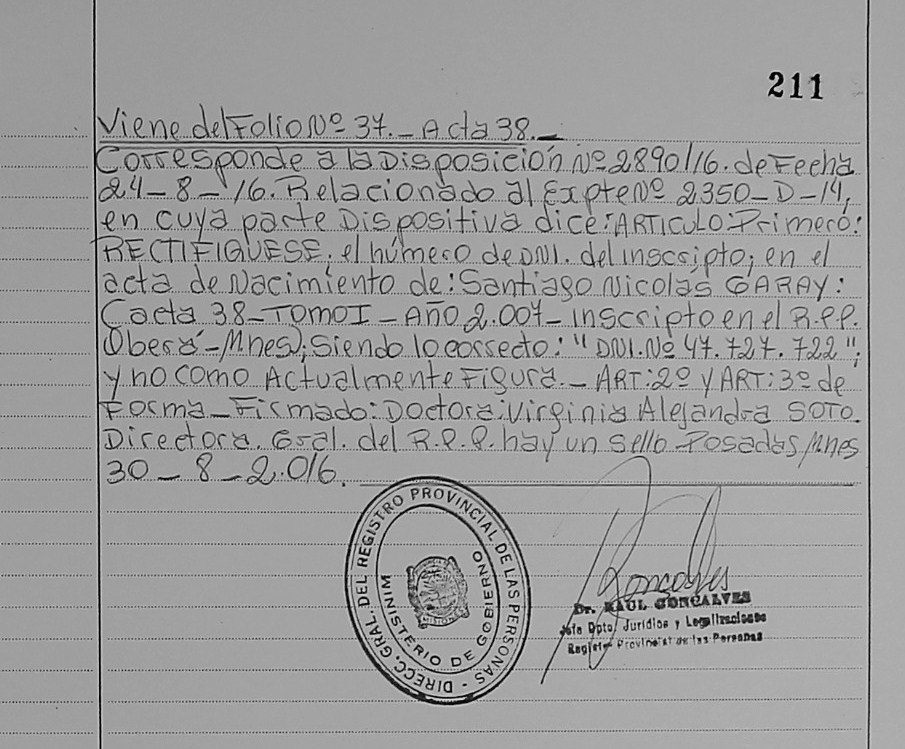 211
Viene del Folio Nº 37._ Acta 38._
Corresponde a la Disposición Nº 2890/16. de Fecha
24-8-16. Relacionado al Expte Nº 2350-D-14,
en cuya parte Dispositiva dice: ARTICULO: Primero:
RECTIFIQUESE. el número de DNI. del inscripto; en el
acta de Nacimiento de: Santiago Nicolas GARAY:
Cacta 38-TOMO I-AÑO 2.007- inscripto en el R.P.P.
Oberá-Mnes); Siendo lo correcto: "DNI. Nº 47.727.722";
y no como Actualmente Figura._ ART: 2º y ART: 3º de
Forma_ Firmado: Doctora: Virginia Alejandra SOTO.
Directora. Gral. del R.P.P. hay un sello Posadas Mnes
30-8-2.016.
DIRECC. GRAL. DEL REGISTRO PROVINCIAL DE LAS PERSONAS -
MINISTERIO DE GOBIERNO
MISIONES
Goncalves
Dr. RAUL GONCALVES
Jefe Dpto. Juridico y Legalizaciones
Registro Provincial de las Personas